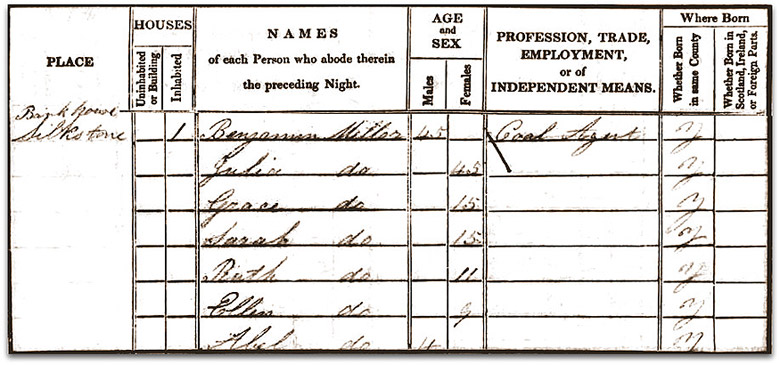 PLACE
HOUSES
Uninhabited or Building
Inhabited
NAMES
of each Person who abode therein
the preceding Night.
AGE
and
SEX
Males
Females
PROFESSION, TRADE,
EMPLOYMENT,
or of
INDEPENDENT MEANS.
Where Born
Whether Born in same County
Whether Born in Scotland, Ireland, or Foreign Parts.
Bank House
Silkstone 1 Benjamin Miller 45 Coal Agent y
Julia do 45 y
Grace do 15 y
Sarah do 15 y
Ruth do 11 y
Ellen do 9 y
Abel do 4 y